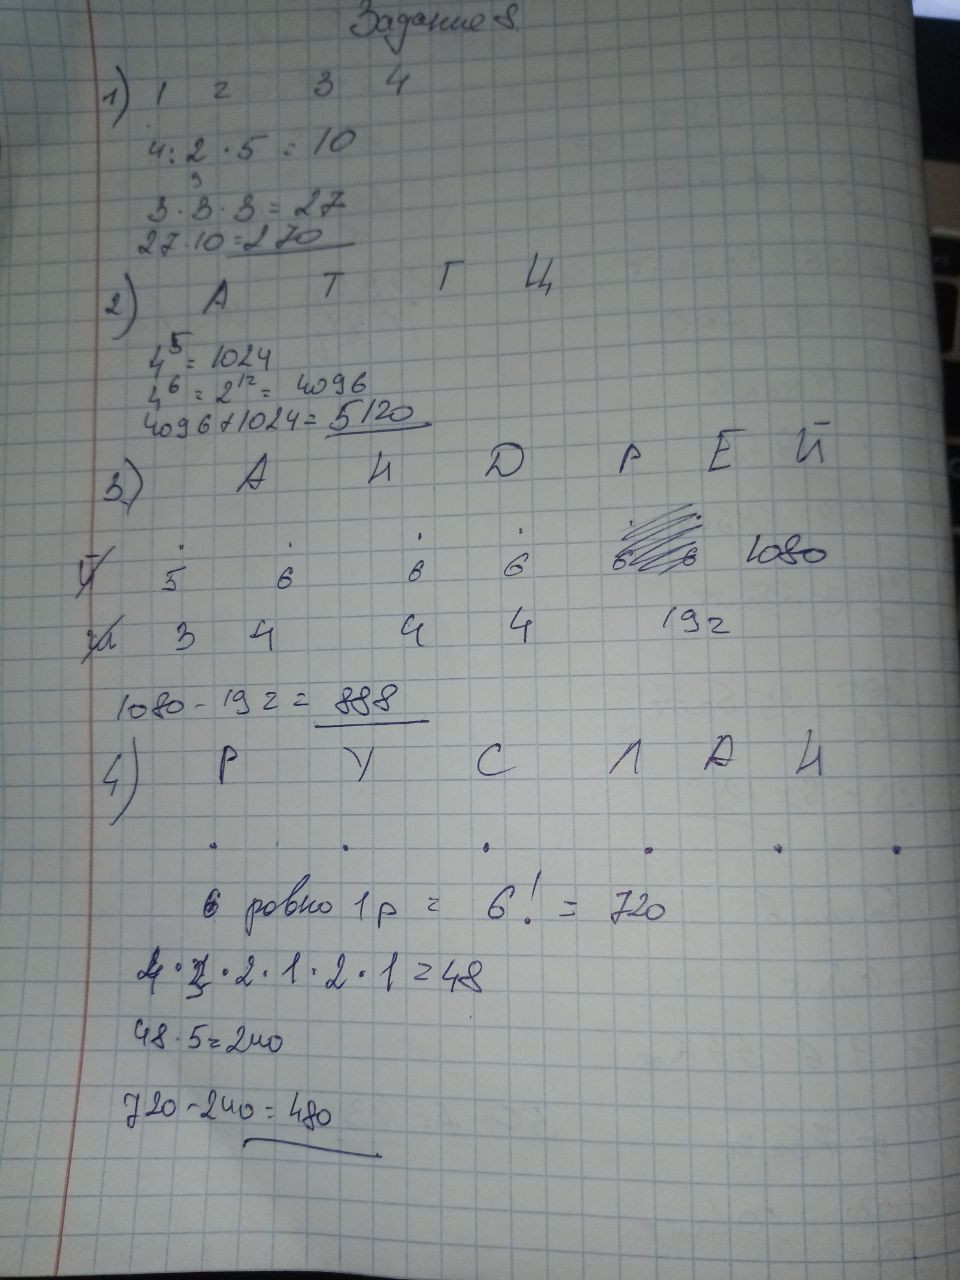 Задание 8.
1) 1 2 3 4
4:2·5=10
9
3·3·3=27
27·10=270
2) А Т Г Ц
4^5=1024
4^6=2^12=4096
4096+1024=5120
3) А Н Д Р Е Й
Й 5 6 6 6 1080
3 4 4 4 192
1080-192=888
4) Р У С Л А Н
6 ровно 1 р = 6! = 720
4·3·2·1·2·1=48
48·5=240
720-240=480